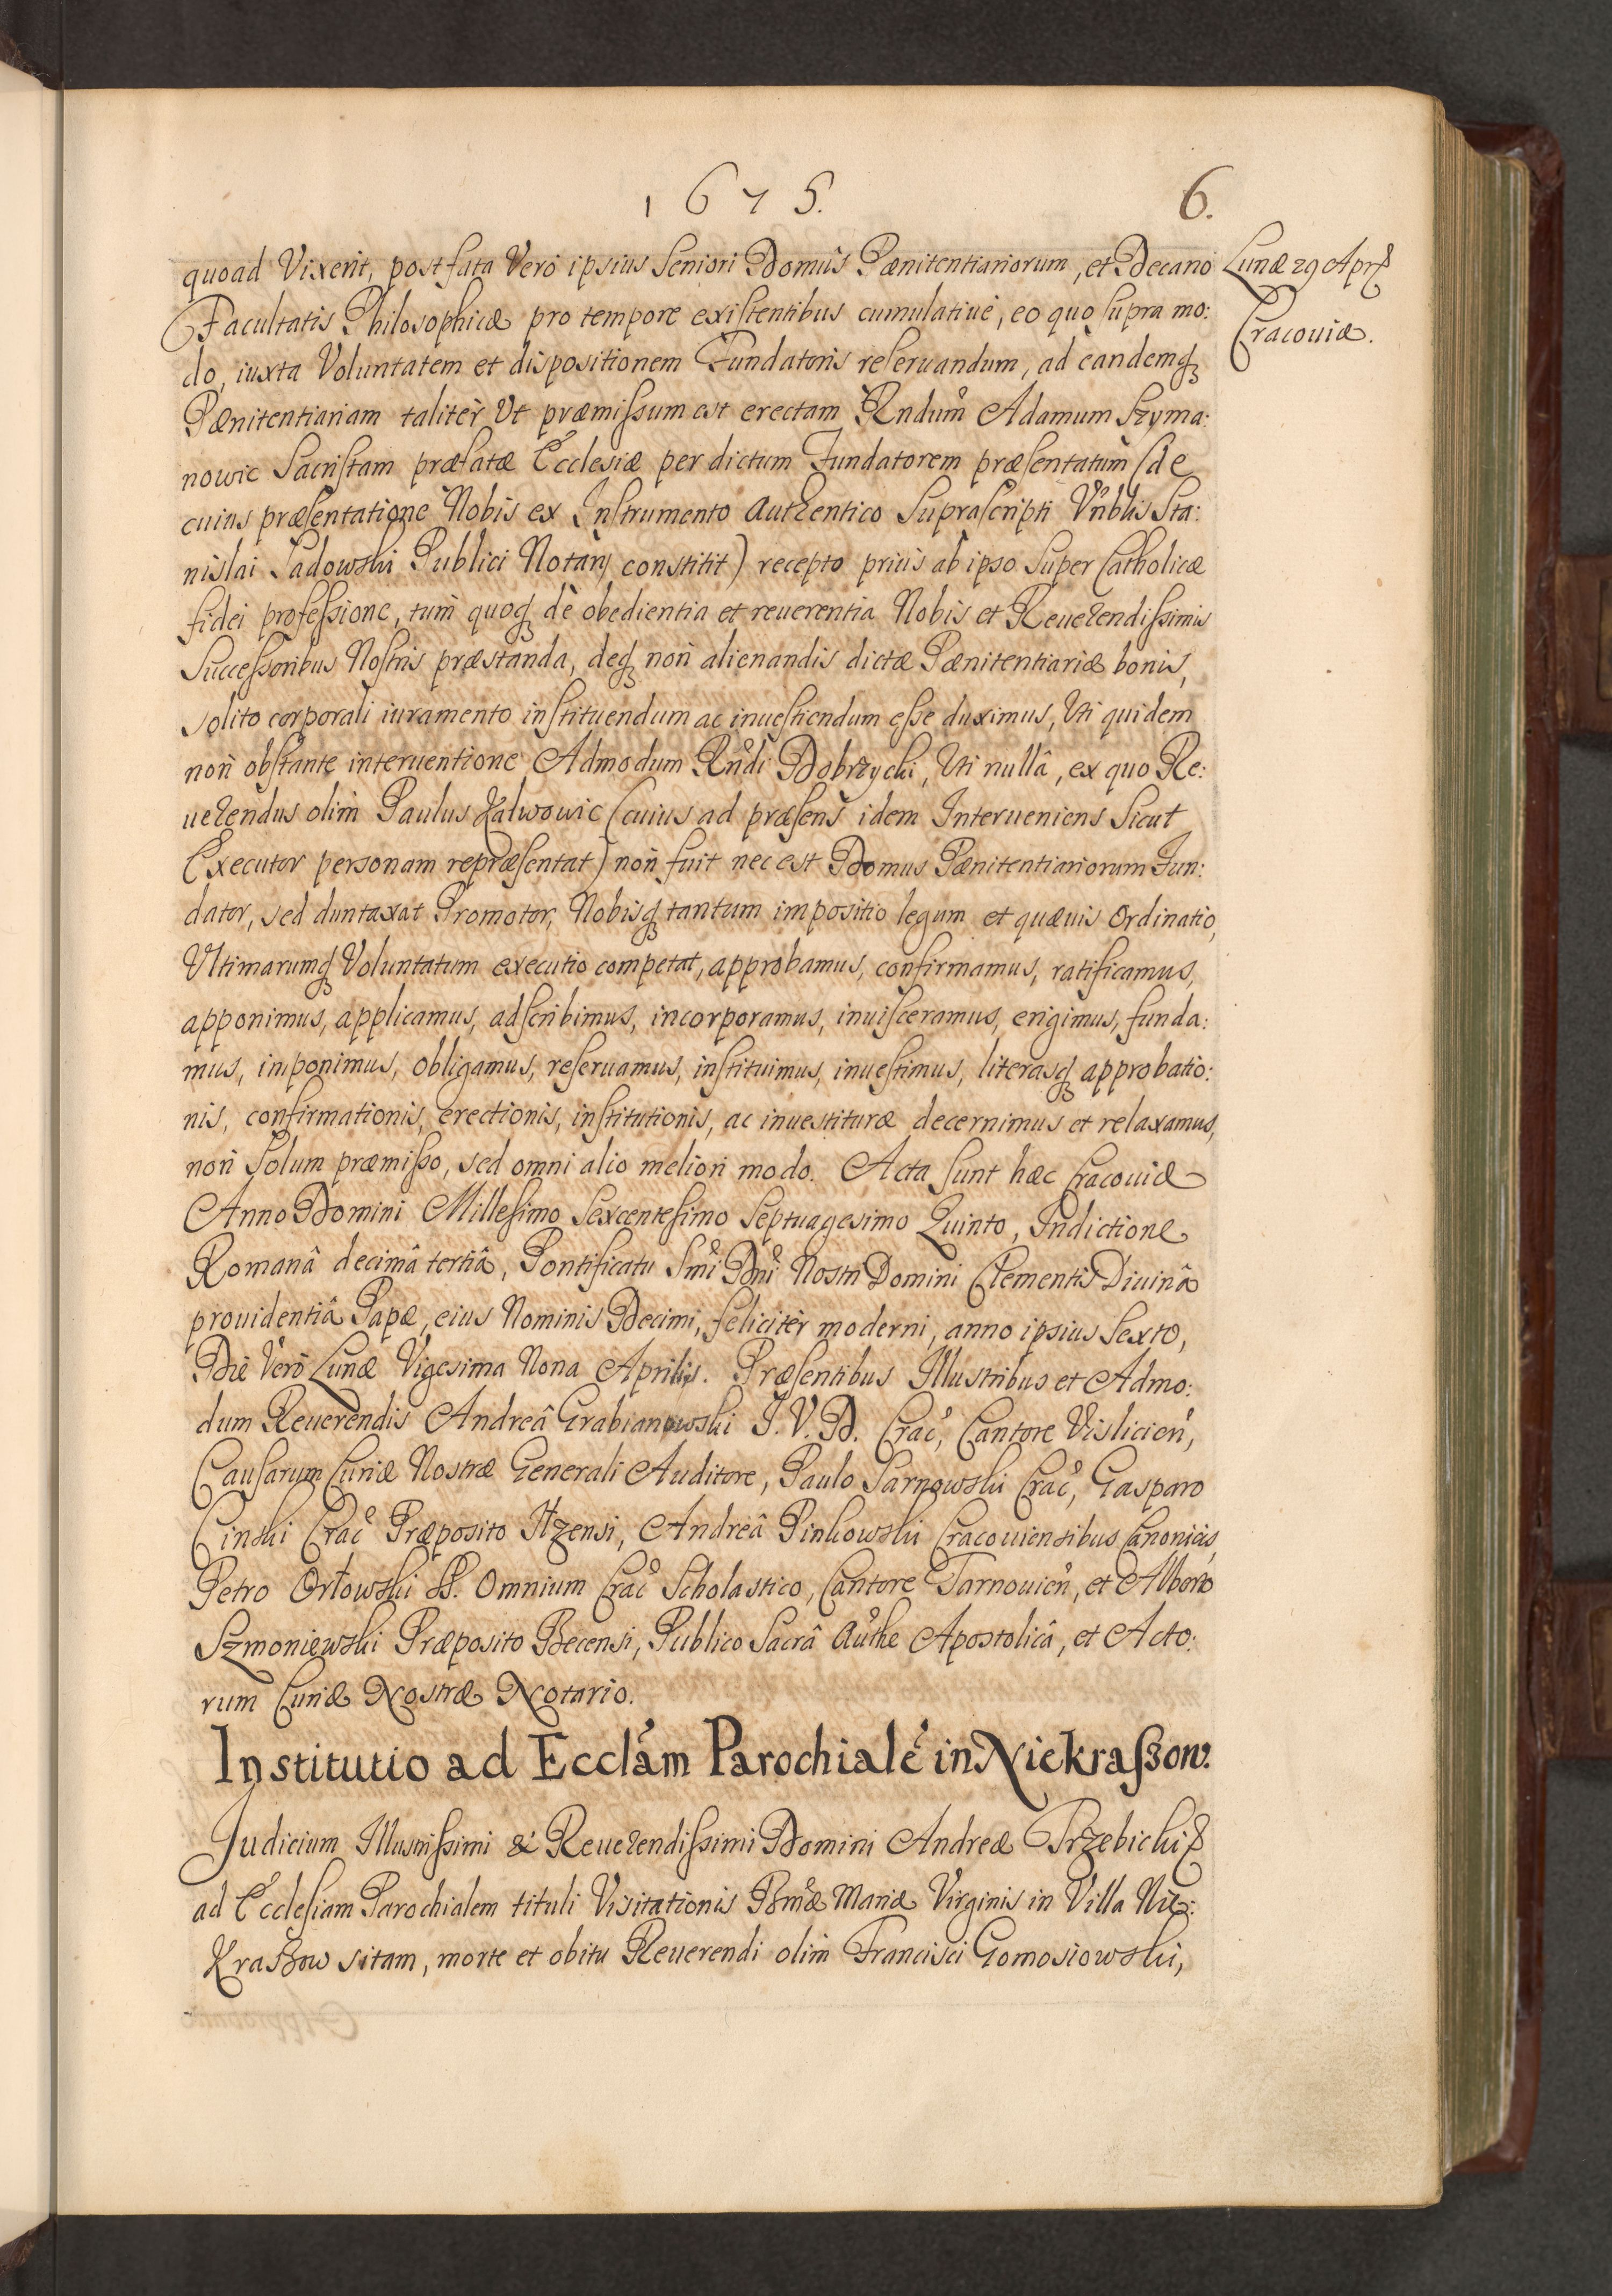 1675.
6.
Lunæ 29 Apr
Cracouiæ.
quoad Vixerit, post fata Verò ipsius Seniori Domûs Pœnitentiariorum, et Decano
Facultatis Philosophicæ pro tempore existentibus cumulatiuè, eo quo supra mo:
do, iuxta Voluntatem et dispositionem Fundatoris reseruandum, ad eandemq;
Pœnitentiariam talitèr Ut præmissum est erectam Rndum Adamum Szyma:
nowic Sacristam præfatæ Ecclesiæ per dictum Fundatorem præsentatum (de
cuius præsentatione Nobis ex Instrumento Authentico Suprascripti Vnblis Sta:
nislai Sadowski Publici Notarij constitit) recepto priùs ab ipso Super Catholicæ
fidei professione, tùm quoq; dè obedientia et reuerentia Nobis et Reuerendissimis
Successoribus Nostris præstanda, deq; non alienandis dictæ Pœnitentiariæ bonis,
solito corporali iuramento instituendum ac inuestiendum esse duximus, Uti quidem
non obstante interuentione Admodum Rndi Dobrzycki, Uti nullâ, ex quo Re:
uerendus olim Paulus Kalwowic (cuius ad præsens idem Interueniens Sicut
Executor personam repræsentat) non fuit nec est Domus Pœnitentiariorum Fun:
dator, sed duntaxat Promotor, Nobisq; tantum impositio legum et quæuis Ordinatio,
Vltimarumq; Voluntatum executio competat, approbamus, confirmamus, ratificamus,
apponimus, applicamus, adscribimus, incorporamus, inuisceramus, erigimus, funda:
mus, imponimus, obligamus, reseruamus, instituimus, inuestimus, literasq; approbatio:
nis, confirmationis, erectionis, institutionis, ac inuestituræ decernimus et relaxamus,
non Solum præmisso, sed omni alio meliori modo. Acta sunt hæc Cracouiæ
Anno Domini Millesimo Sexcentesimo Septuagesimo Quinto, Indictione
Romanâ decimâ tertiâ, Pontificatu Smi Dni Nostri Domini Clementis Diuinâ
prouidentiâ Papæ, eius Nominis Decimi, felicitèr moderni, anno ipsius Sexto,
Die Verò Lunæ Vigesima Nona Aprilis. Præsentibus Illustribus et Admo:
dum Reuerendis Andreâ Grabianowski I. V. D. Crac, Cantore Vislicien,
Causarum Curiæ Nostræ Generali Auditore, Paulo Sarnowski Crac, Gasparo
Cinski Crac Præposito Ilzensi, Andreâ Pinkowski Cracouiensibus Canonicis,
Petro Orłowski SS. Omnium Crac Scholastico, Cantore Tarnouien, et Alberto
Szmoniewski Præposito Becensi, Publico Sacrâ Authe Apostolicâ, et Acto:
rum Curiæ Nostræ Notario.
Institutio ad Ecclam Parochiale in Niekraßow.
Judicium Illustrissimi & Reuerendissimi Domini Andreæ Trzebicki
ad Ecclesiam Parochialem tituli Visitationis Bmæ Mariæ Virginis in Villa Nie:
Kraßow sitam, morte et obitu Reuerendi olim Francisci Gomosiowski,